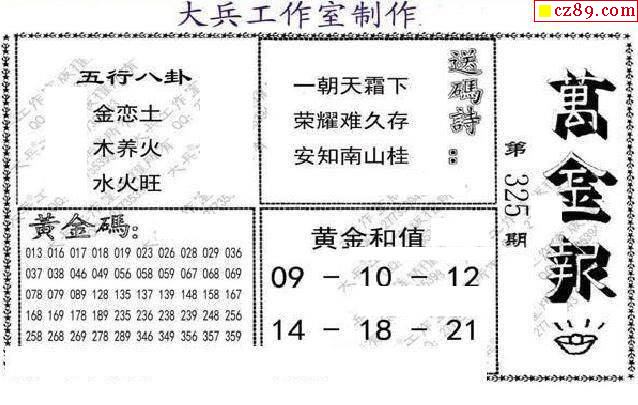 大兵工作室制作
cz89.com
五行八卦
金恋土
木养火
水火旺
送碼詩：
一朝天霜下
荣耀难久存
安知南山桂
萬金报
第325期
黃金碼：
013 016 017 018 019 023 026 028 029 036
037 038 046 049 056 058 059 067 068 069
078 079 089 128 135 137 139 148 158 167
168 169 178 189 235 236 238 239 248 256
258 268 269 278 289 346 349 356 357 359
黄金和值
09 - 10 - 12
14 - 18 - 21